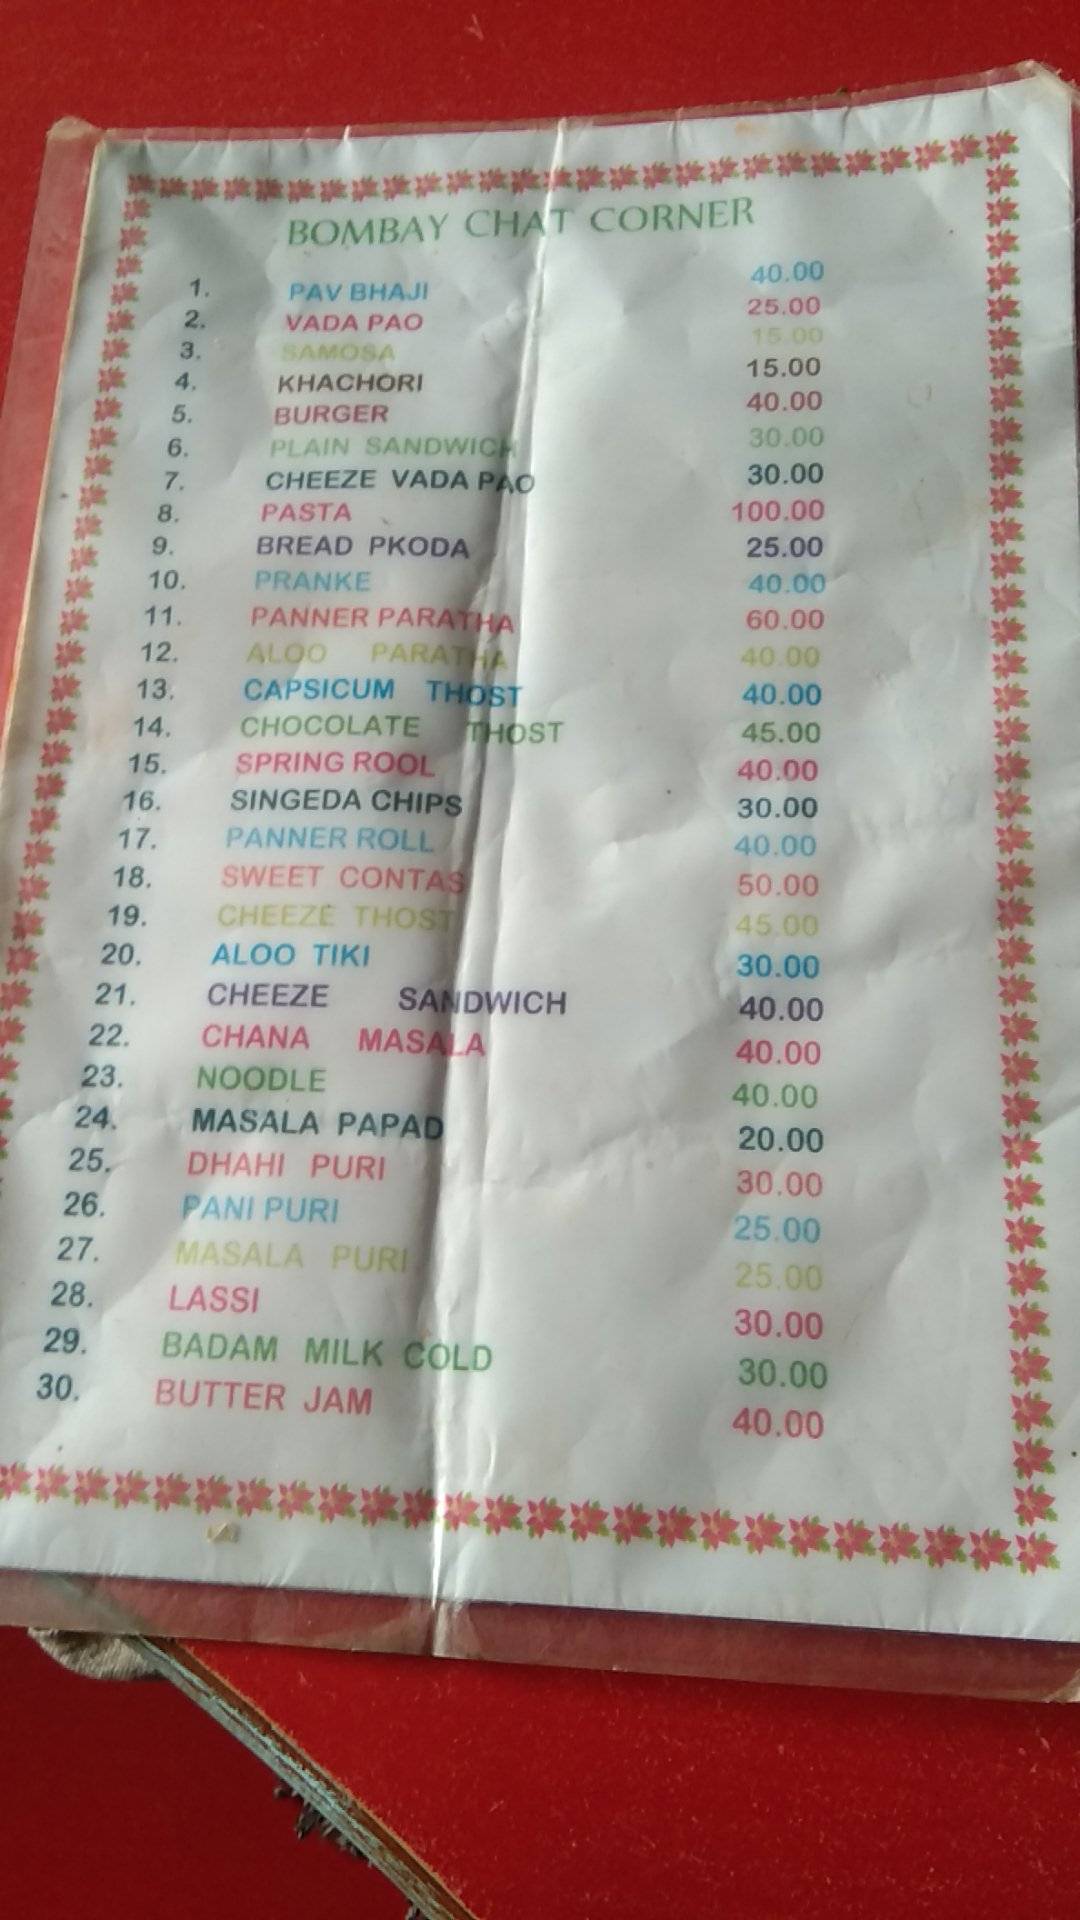 BOMBAY CHAT CORNER
1. PAV BHAJI 40.00
2. VADA PAO 25.00
3. SAMOSA 15.00
4. KHACHORI 15.00
5. BURGER 40.00
6. PLAIN SANDWICH 30.00
7. CHEEZE VADA PAO 30.00
8. PASTA 100.00
9. BREAD PKODA 25.00
10. PRANKE 40.00
11. PANNER PARATHA 60.00
12. ALOO PARATHA 40.00
13. CAPSICUM THOST 40.00
14. CHOCOLATE THOST 45.00
15. SPRING ROOL 40.00
16. SINGEDA CHIPS 30.00
17. PANNER ROLL 40.00
18. SWEET CONTAS 50.00
19. CHEEZE THOST 45.00
20. ALOO TIKI 30.00
21. CHEEZE SANDWICH 40.00
22. CHANA MASALA 40.00
23. NOODLE 40.00
24. MASALA PAPAD 20.00
25. DHAHI PURI 30.00
26. PANI PURI 25.00
27. MASALA PURI 25.00
28. LASSI 30.00
29. BADAM MILK COLD 30.00
30. BUTTER JAM 40.00